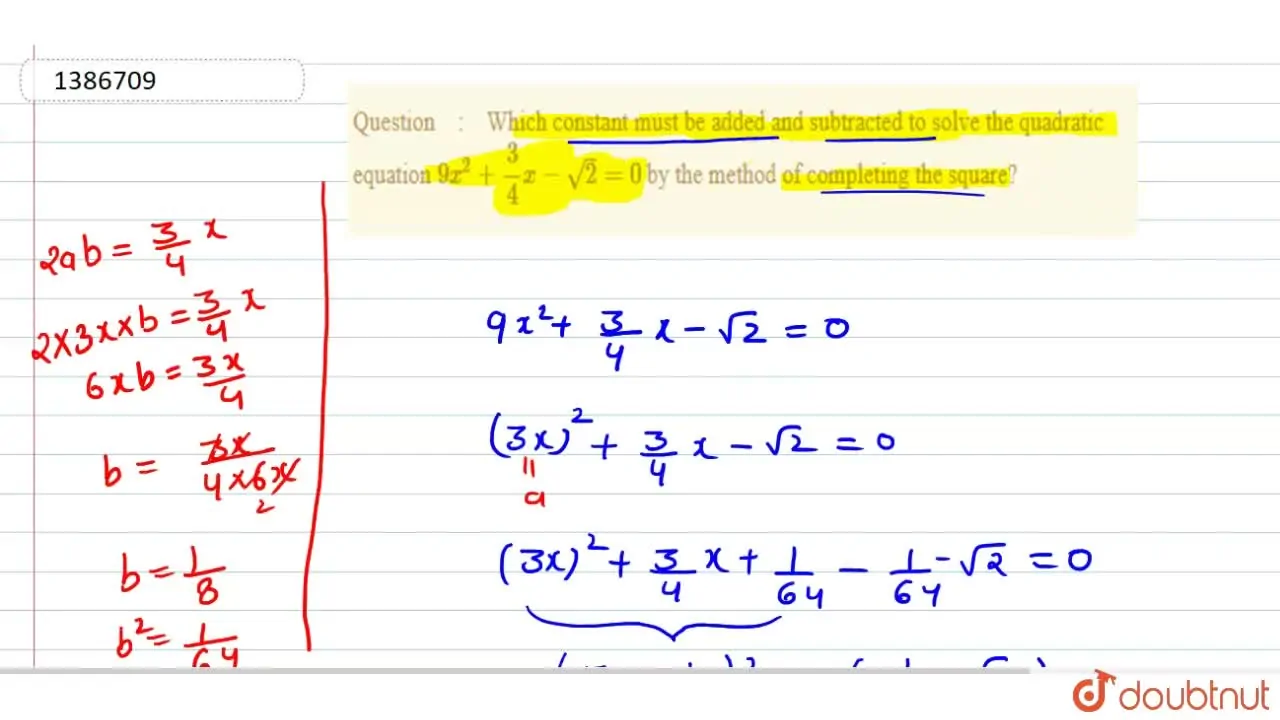 1386709
Question : Which constant must be added and subtracted to solve the quadratic
equation 9x² + 3/4 x − √2 = 0 by the method of completing the square?
2ab = 3/4 x
2×3x×b = 3/4 x
6xb = 3x/4
b = 3x/4×6x
2
b = 1/8
b² = 1/64
9x² + 3/4 x − √2 = 0
(3x)² + 3/4 x − √2 = 0
॥
a
(3x)² + 3/4 x + 1/64 − 1/64 − √2 = 0
doubtnut